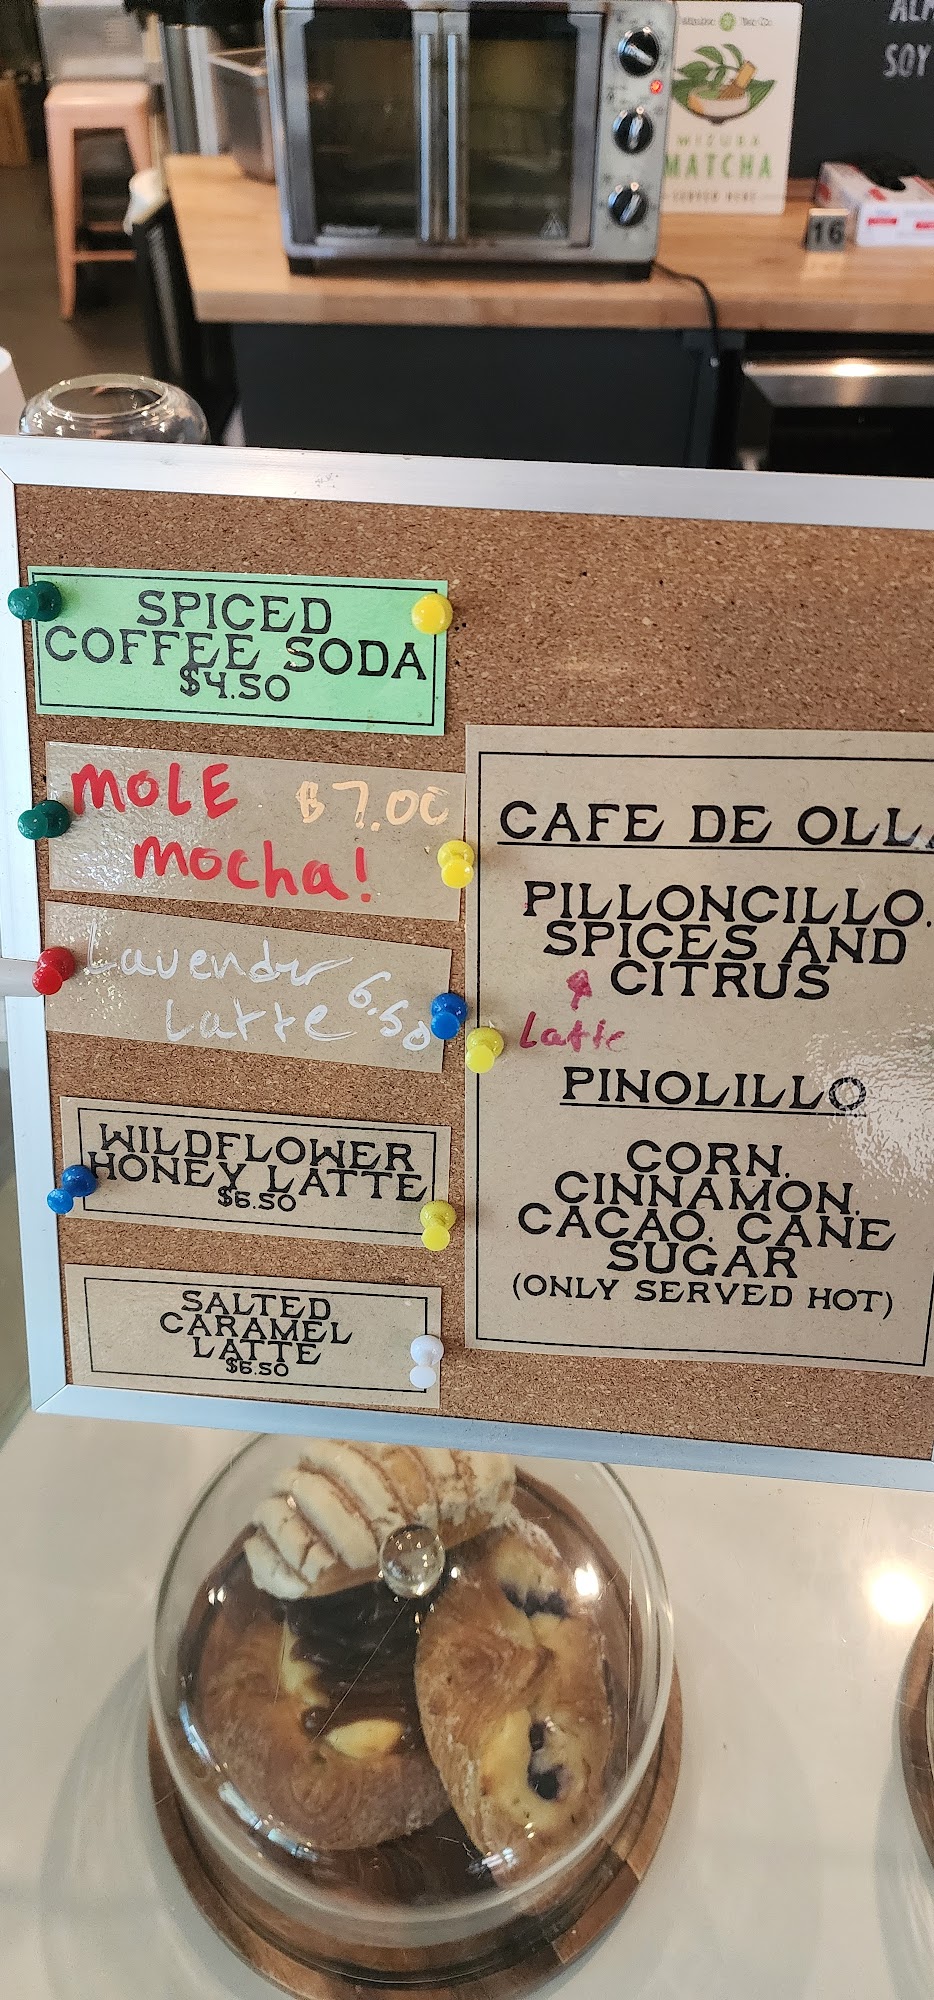 ALM
SOY
WIZUBA
MATCHA
SERVED HERE
16
SPICED
COFFEE SODA
$4.50
MOLE $7.00
mocha!
Lavender
Latte 6.50
WILDFLOWER
HONEY LATTE
$6.50
SALTED
CARAMEL
LATTE
$6.50
CAFE DE OLLA
PILLONCILLO,
SPICES AND
CITRUS
Latte
PINOLILLO
CORN,
CINNAMON,
CACAO, CANE
SUGAR
(ONLY SERVED HOT)